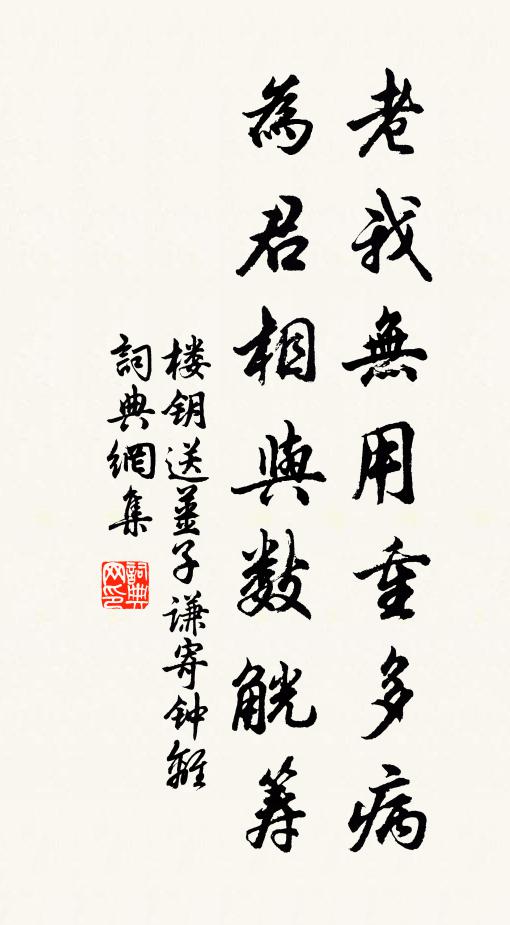 老我無用重多病
為君相與數觥筹
楼钥送薑子谦寄钟離
詞典網集
詞典网印